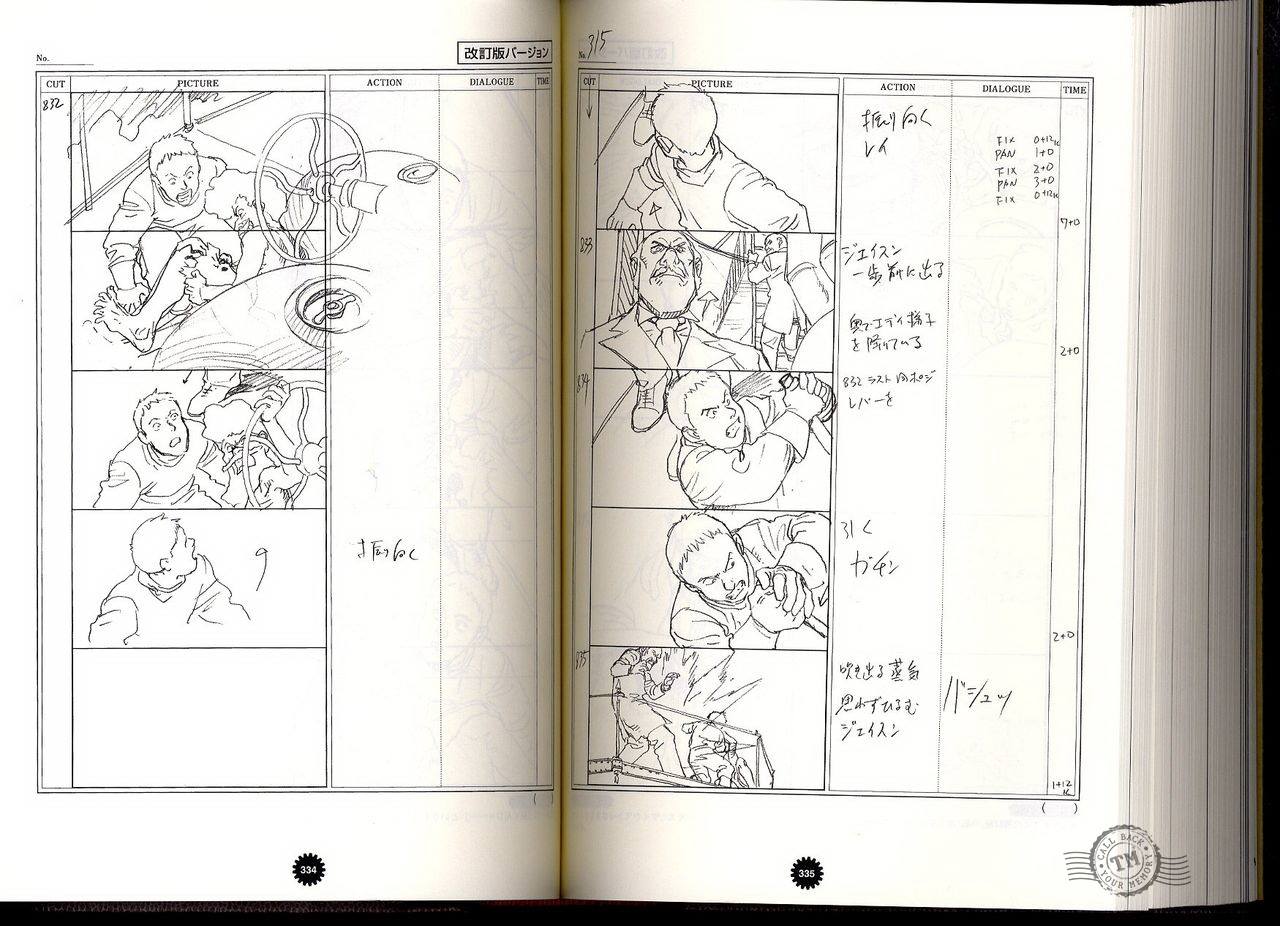 No.
改訂版バージョン
CUT PICTURE ACTION DIALOGUE TIME
832
振り向く
334
No. 315
CUT PICTURE ACTION DIALOGUE TIME
振り向く
レイ
FIX 0+12K
PAN 1+0
FIX 2+0
PAN 3+0
FIX 0+12K
7+0
833
ジェイスン
一歩前に出る
奥でエディ様子
を
2+0
834
832 ラスト
レバーを
引く
ガチン
2+0
835
吹き出る蒸気
思わずひるむ
ジェイスン
バシュッ
1+12
K
( )
( )
335
CALL BACK
TM
YOUR MEMORY